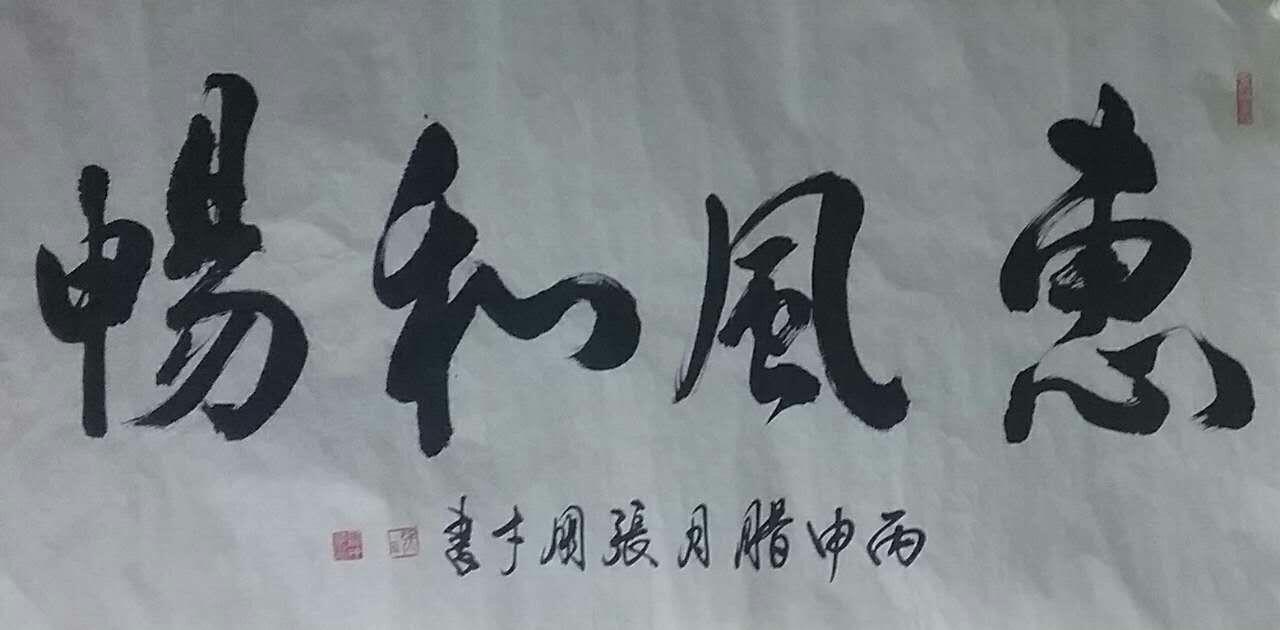 惠風和暢
丙申腊月張國才書